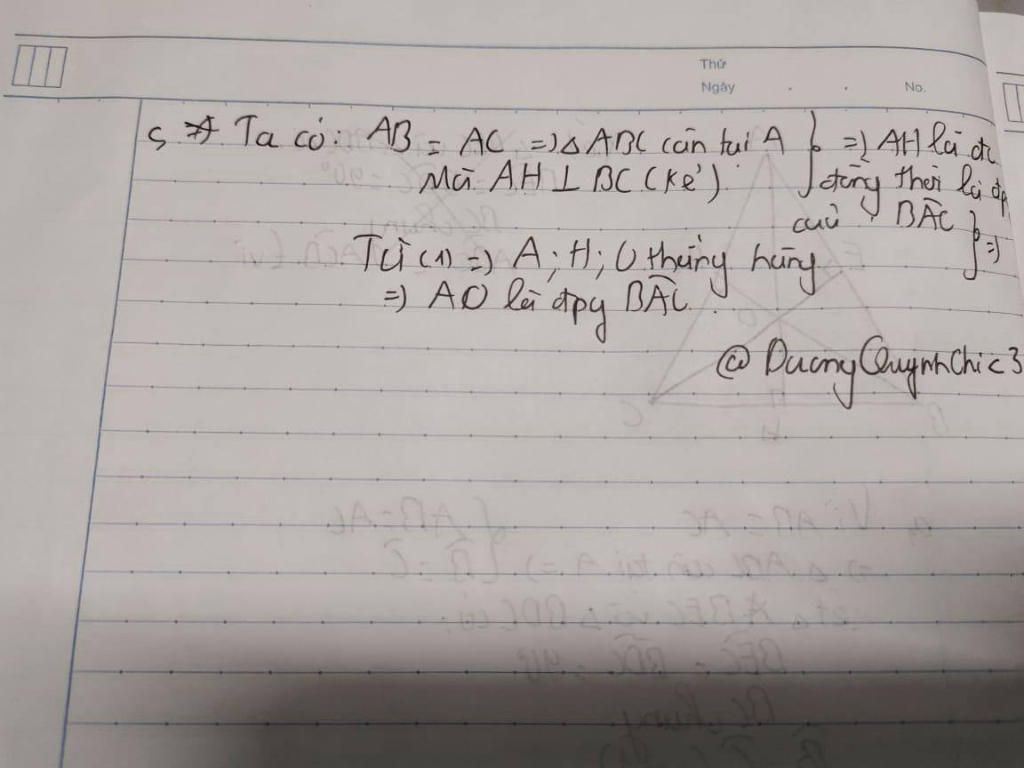 Thứ
Ngày . . No.
c, Ta có: AB = AC => △ ABC cân tại A } => AH là đc
Mà AH ⊥ BC (kẻ) đồng thời là đp
của BAC } =>
Từ (1) => A; H; O thẳng hàng
=> AO là đpg BAC.
@DuongQuynhChi<3